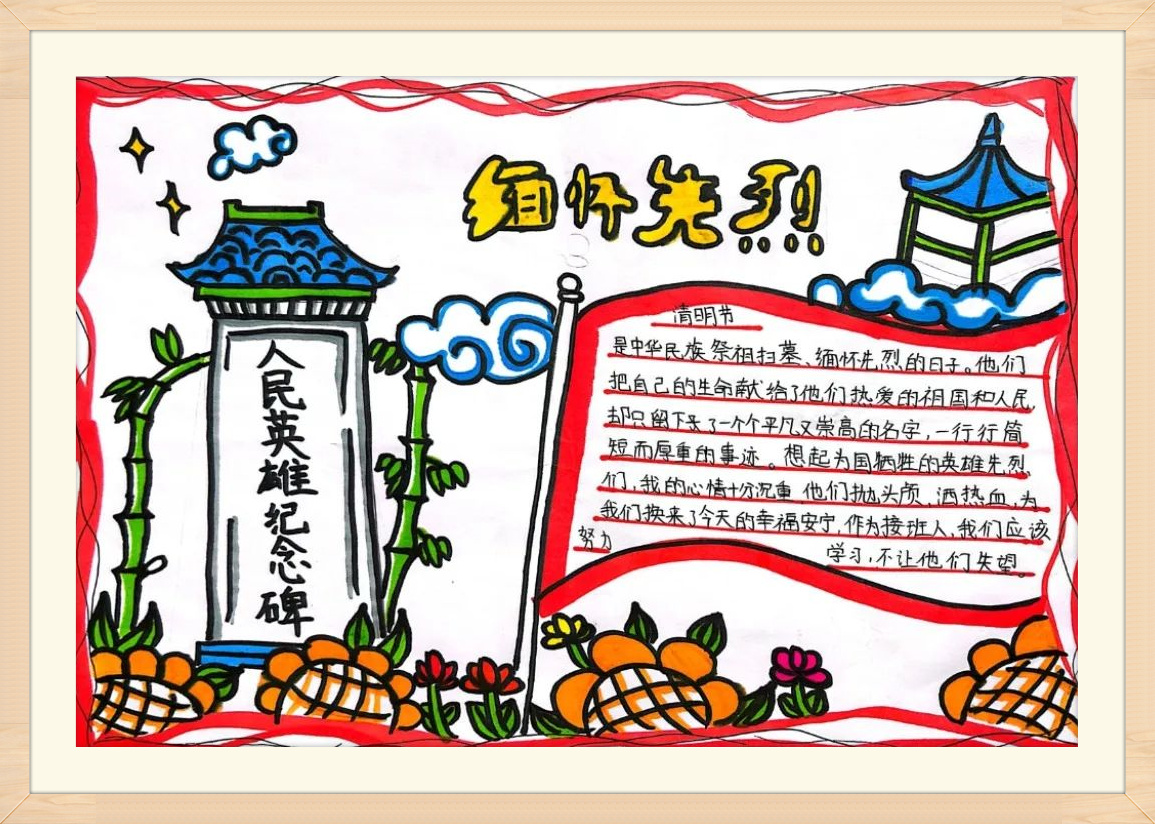 缅怀先烈
人民英雄纪念碑
清明节
是中华民族祭祖扫墓、缅怀先烈的日子。他们
把自己的生命献给了他们热爱的祖国和人民,
却只留下来了一个个平凡又崇高的名字,一行行简
短而厚重的事迹。想起为国牺牲的英雄先烈
们,我的心情十分沉重 他们抛头颅,洒热血,为
我们换来了今天的幸福安宁,作为接班人,我们应该
努力
学习,不让他们失望。